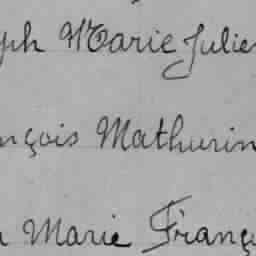 ph Marie Julie
nçois Mathurin
Marie Franç